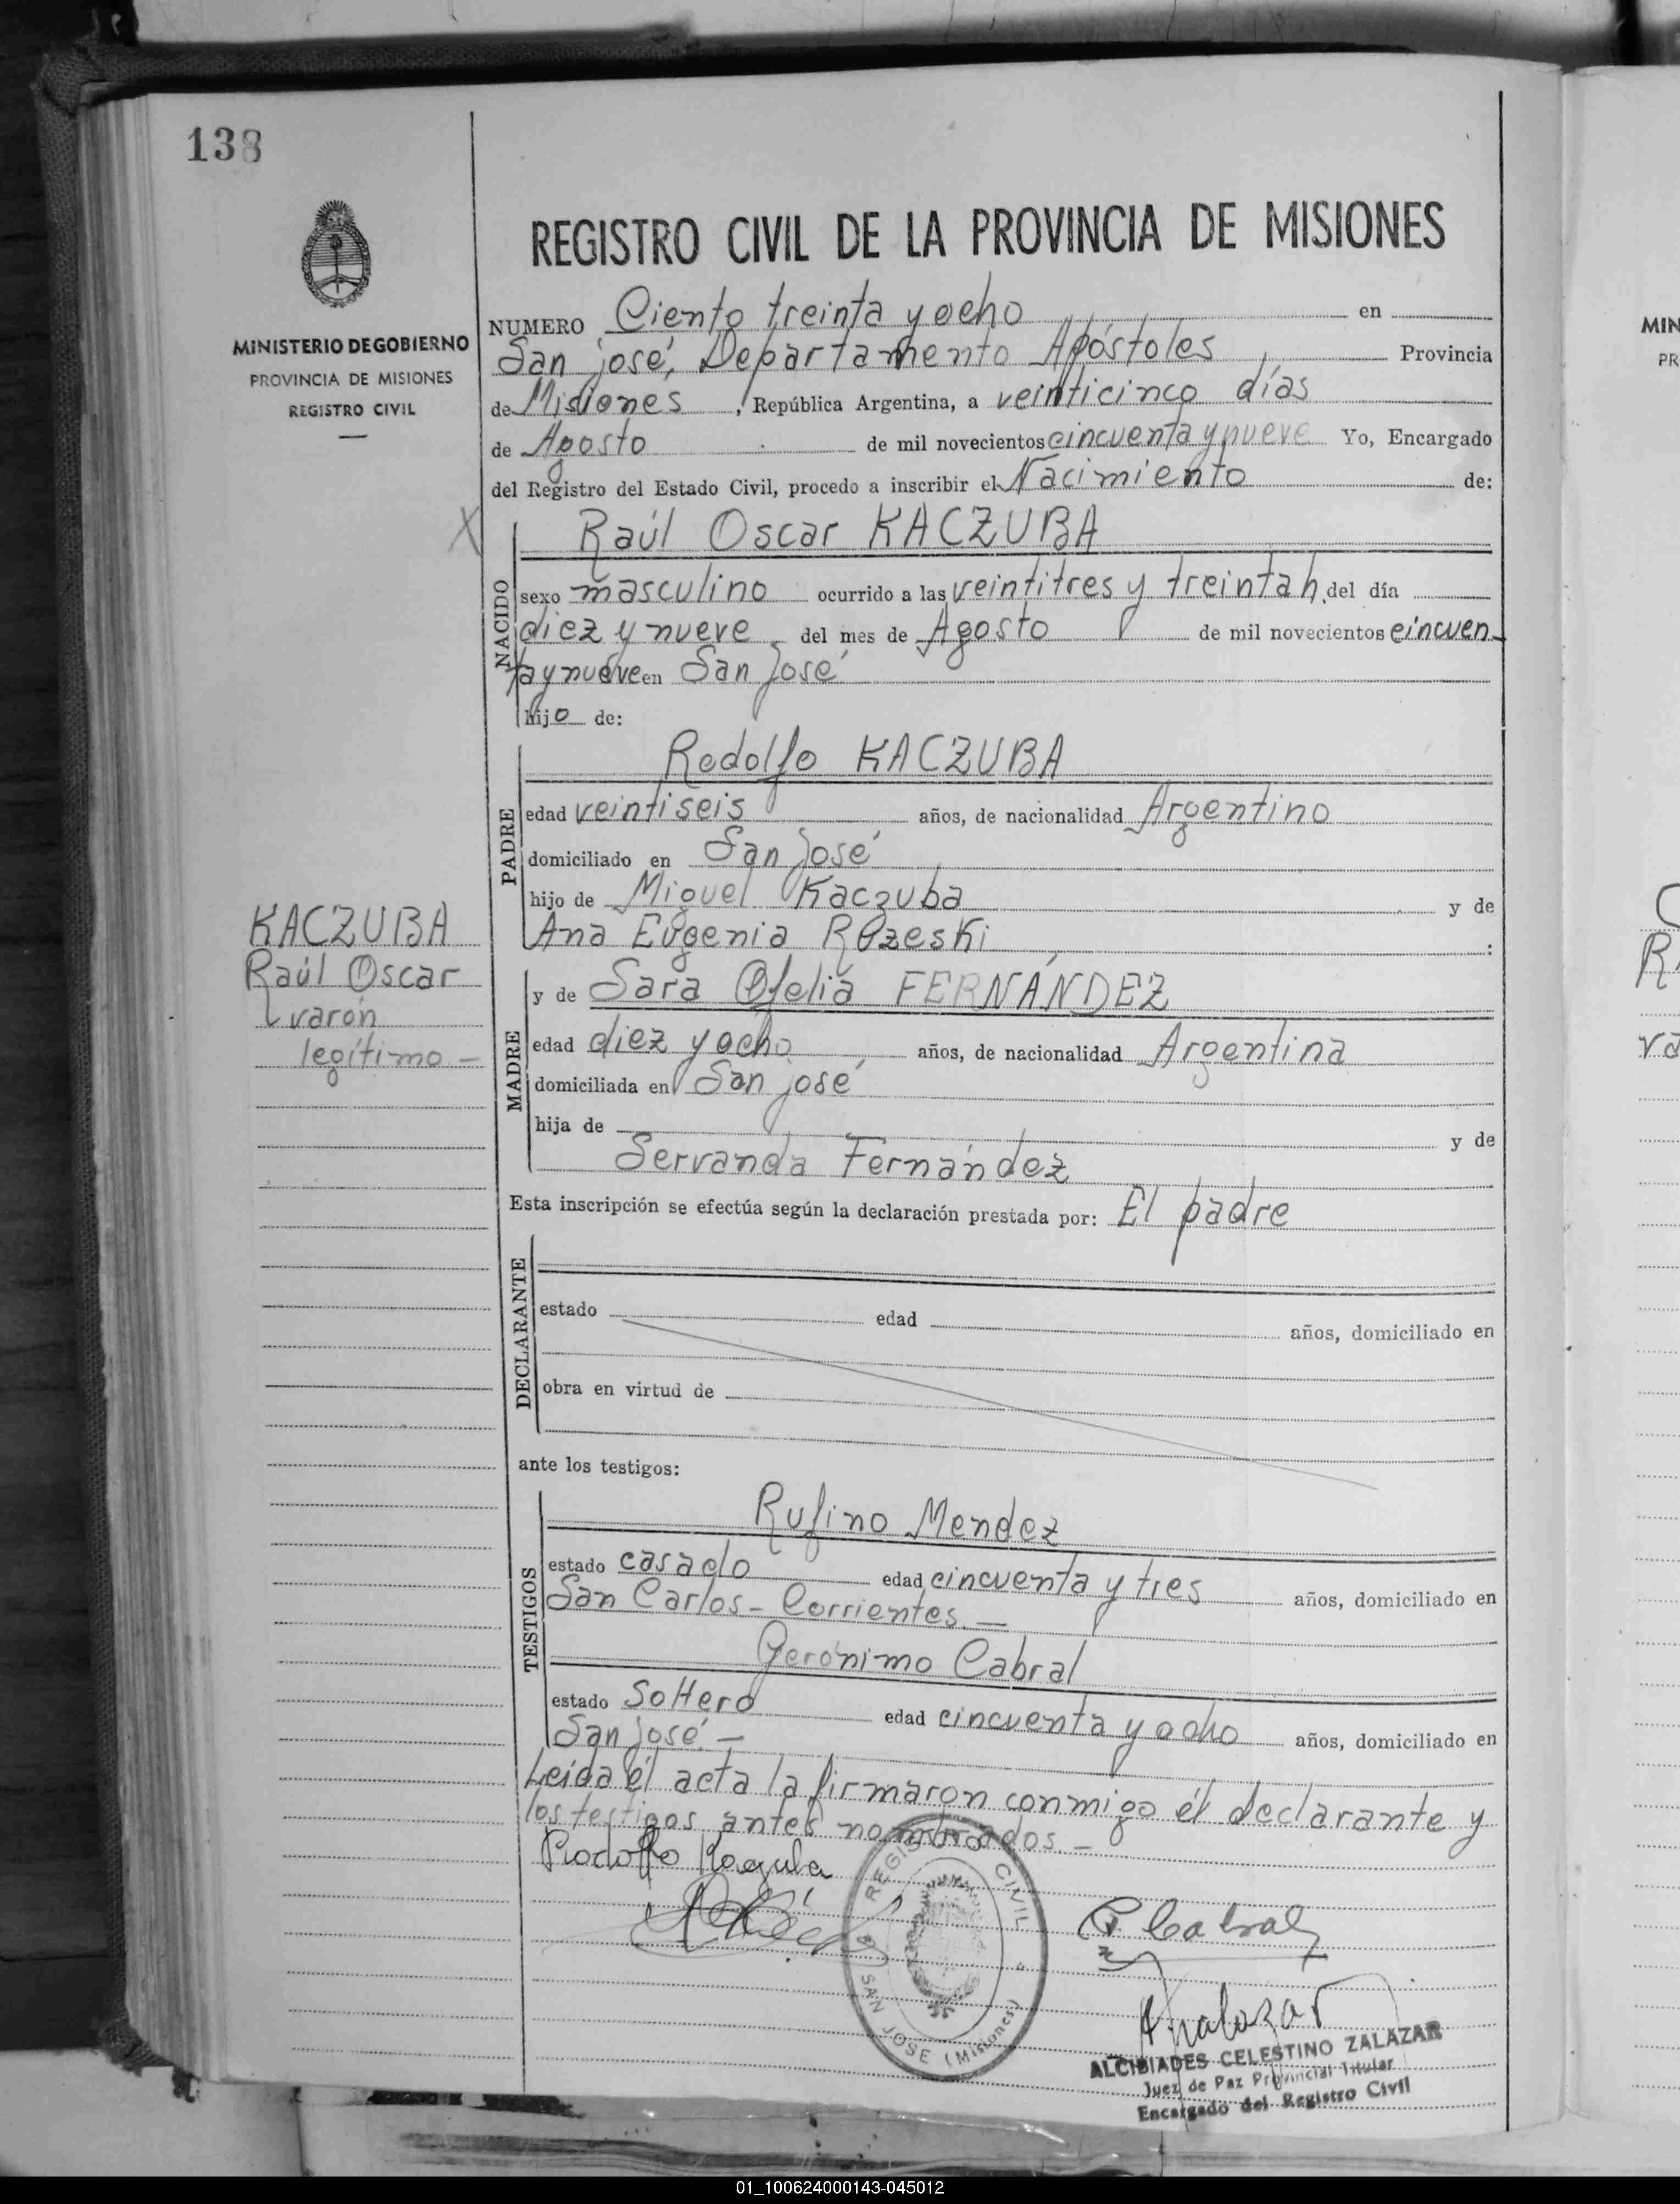 138
MINISTERIO DE GOBIERNO
PROVINCIA DE MISIONES
REGISTRO CIVIL
REGISTRO CIVIL DE LA PROVINCIA DE MISIONES
NUMERO Ciento treinta y ocho en
San josé, Departamento Apóstoles Provincia
de Misiones, República Argentina, a veinticinco días
de Agosto de mil novecientos cincuenta y nueve Yo, Encargado
del Registro del Estado Civil, procedo a inscribir el Nacimiento de:
X
NACIDO
Raúl Oscar KACZUBA
sexo masculino ocurrido a las veintitres y treinta h. del día
diez y nueve del mes de Agosto de mil novecientos cincuen-
ta y nueve en San José
hijo de:
PADRE
Rodolfo KACZUBA
edad veintiseis años, de nacionalidad Argentino
domiciliado en San José
hijo de Miguel Kaczuba y de
Ana Eugenia Rozeski :
KACZUBA
Raúl Oscar
varón
legítimo -
MADRE
y de Sara Ofelia FERNÁNDEZ
edad diez y ocho años, de nacionalidad Argentina
domiciliada en San josé
hija de y de
Servanda Fernández
Esta inscripción se efectúa según la declaración prestada por: El padre
DECLARANTE
estado edad años, domiciliado en
obra en virtud de
ante los testigos:
TESTIGOS
Rufino Mendez
estado casado edad cincuenta y tres años, domiciliado en
San Carlos - Corrientes. -
Gerónimo Cabral
estado Soltero edad cincuenta y ocho años, domiciliado en
San José. -
Leída el acta la firmaron conmigo él declarante y
los testigos antes nombrados. -
Rodolfo
REGISTRO CIVIL
SAN JOSE (Misiones)
G. Cabral
AZalazar
ALCIBIADES CELESTINO ZALAZAR
Juez de Paz Provincial Titular
Encargado del Registro Civil
MIN
PR
01_100624000143-045012